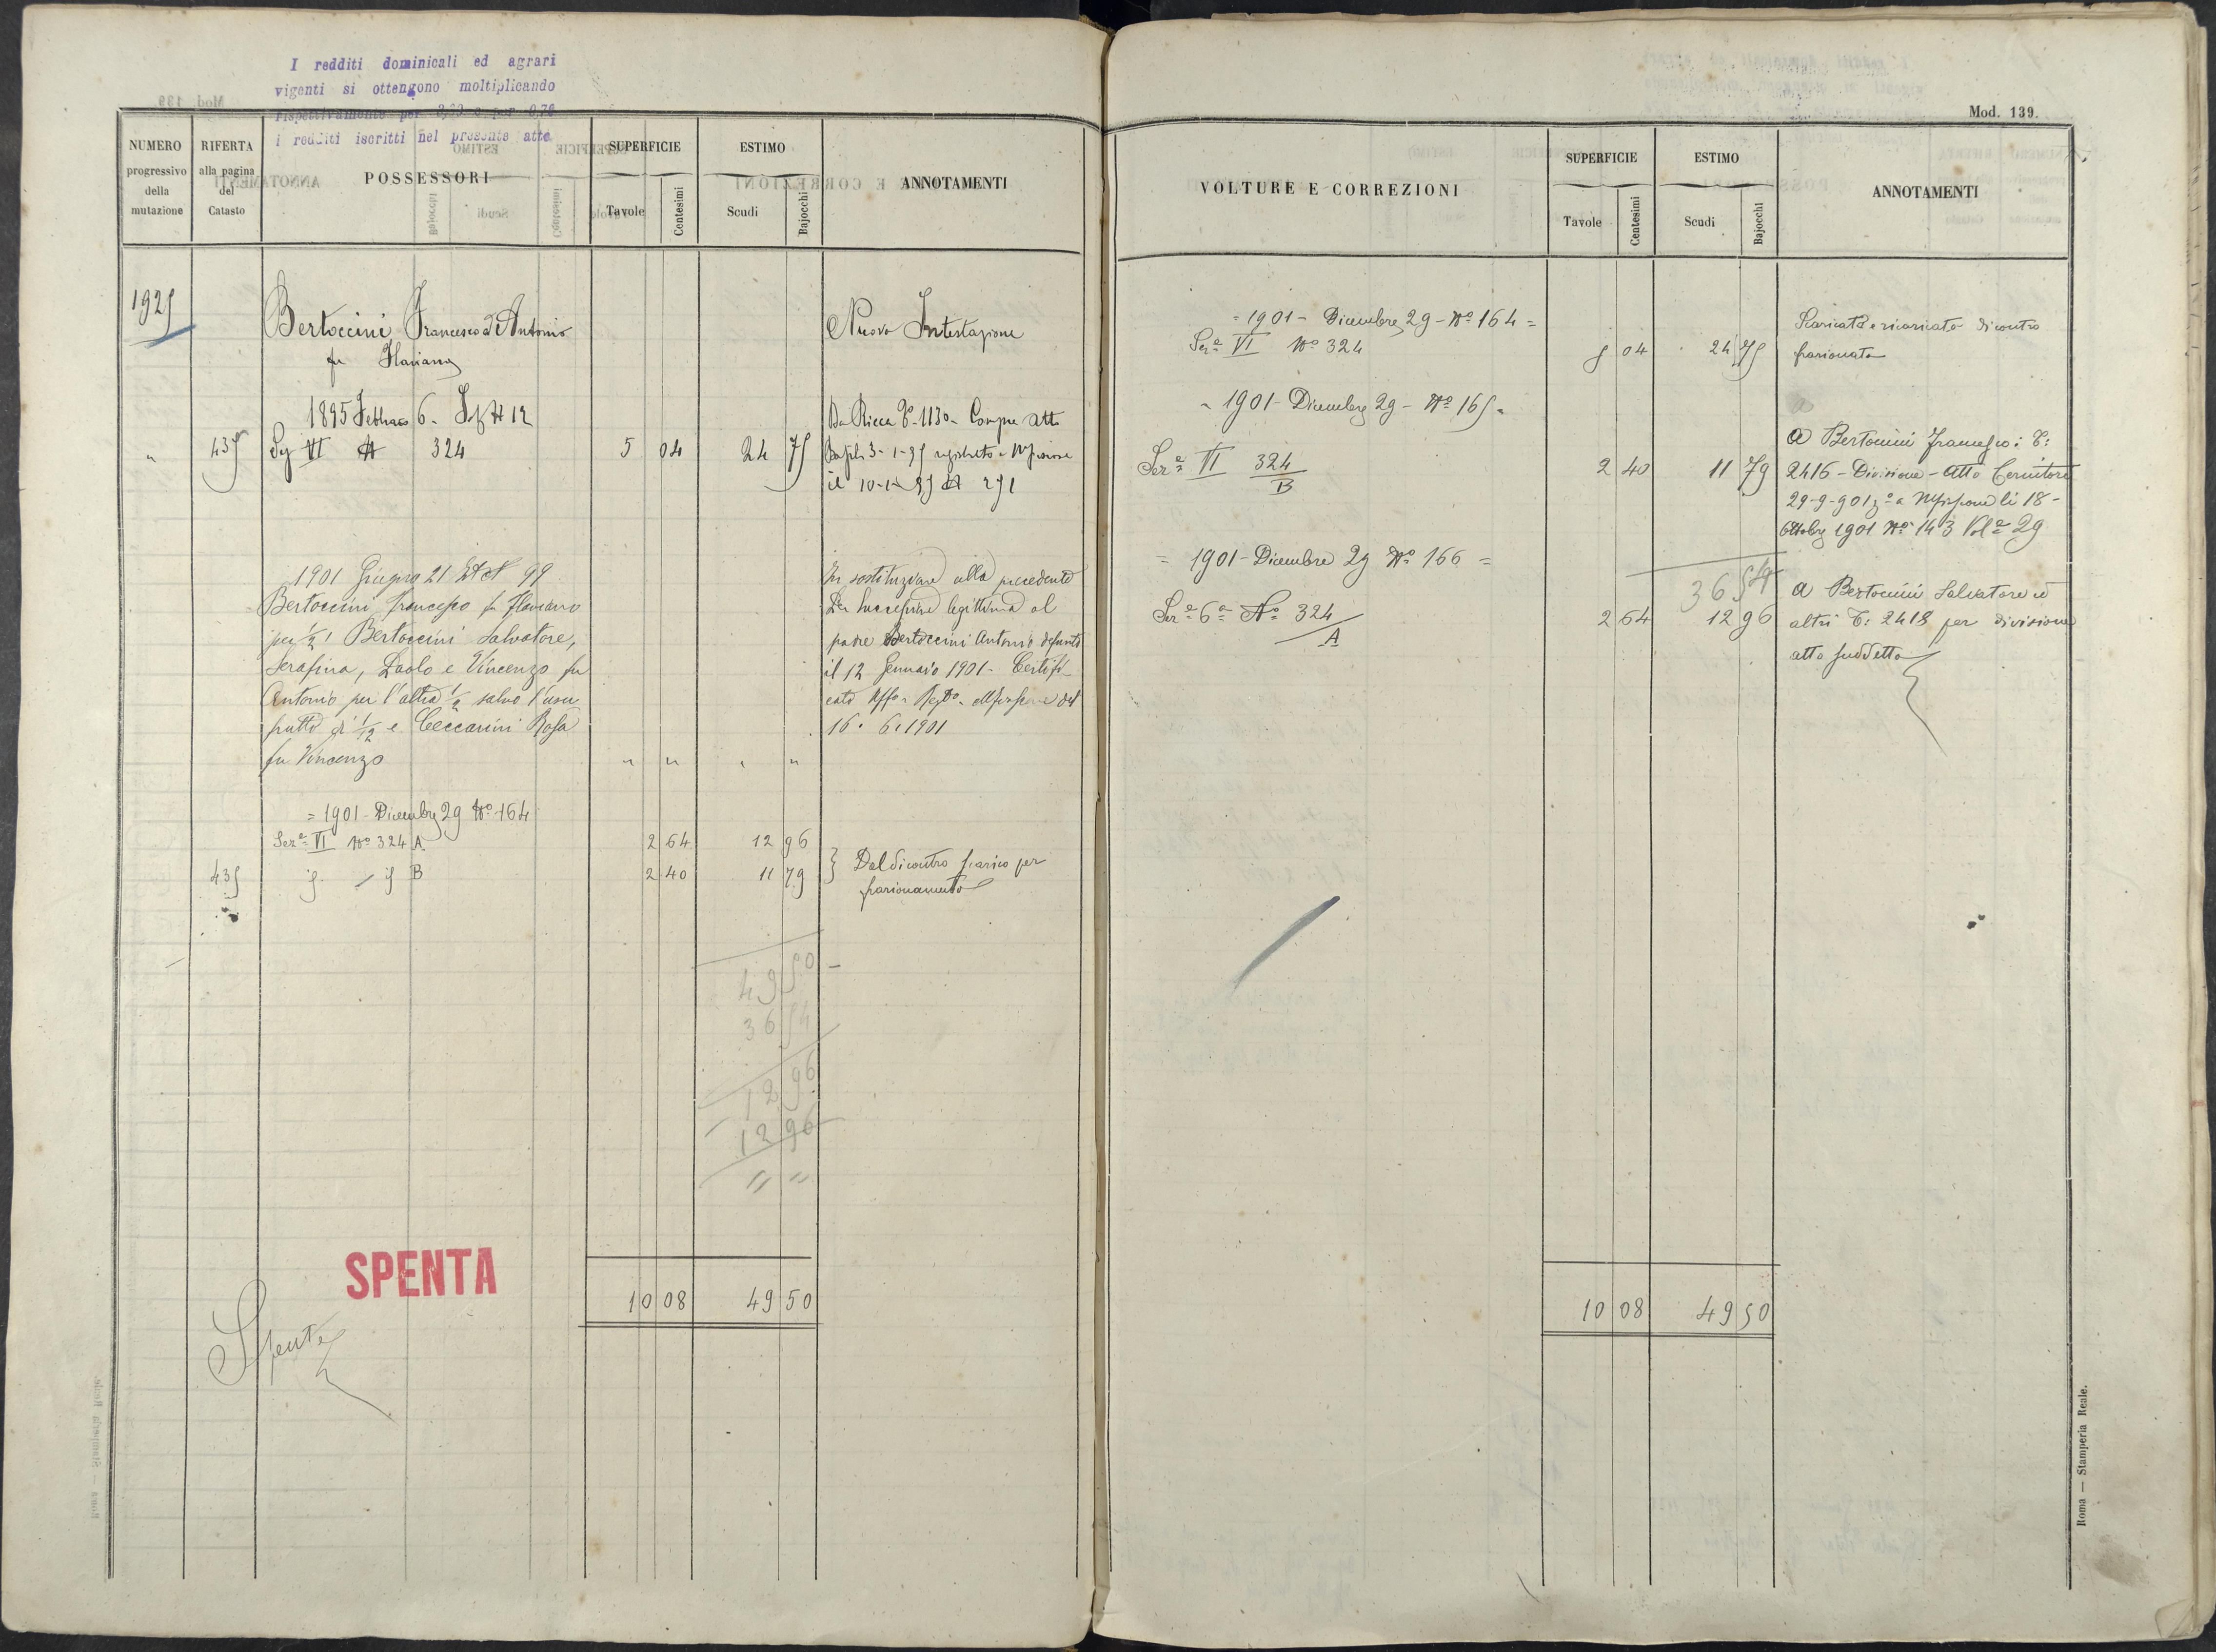 I redditi dominicali ed agrari
vigenti si ottengono moltiplicando
rispettivamente per
i redditi iscritti nel presente atto
NUMERO
progressivo
della
mutazione
RIFERTA
alla pagina
del
Catasto
POSSESSORI
SUPERFICIE
Tavole
Centesimi
ESTIMO
Scudi
Bajocchi
ANNOTAMENTI
1925
Bertoccini Francesco ed Antonio
fu Flaviano
Nuova Intestazione
1895 Febbraio 6 - 12
" 435 VI 324 5 04 24 75
Da Ricca 1130 - Compra Atto
3-1-95
il 10-1-95
1901 Giugno 21 99
Bertoccini Francesco fu Flaviano
per 1/2 Bertoccini Salvatore,
Serafina, Paolo e Vincenzo fu
Antonio per l'altra 1/2 salvo l'usu
frutto di 1/12 e Ceccarini Rosa
fu Vincenzo " " " "
In sostituzione alla precedente
Per successione legittima al
padre Bertoccini Antonio defunto
il 12 Gennaio 1901 - Certifi
cato
16. 6. 1901
= 1901 - Dicembre 29 No 164
Seze VI No 324 A 2 64 12 96
435 B 2 40 11 79
Dal dicontro scarico per
frazionamento
49 50
36 54
12 96
12 96
" "
SPENTA
Spenta
10 08 49 50
Mod. 139.
VOLTURE E CORREZIONI
SUPERFICIE
Tavole
Centesimi
ESTIMO
Scudi
Bajocchi
ANNOTAMENTI
= 1901 - Dicembre 29 - No 164 =
Seze VI No 324 5 04 24 75
Scaricata e ricaricata dicontro
frazionata
- 1901 - Dicembre 29 - No 165 =
Seze VI 324/B 2 40 11 79
A Bertoccini Francesco:
2416 - Divisione - Atto
29-9-901 li 18 -
Ottobre 1901 No 143 Vole 29
= 1901 - Dicembre 29 No 166 =
36 54
Seze 6a No 324/A 2 64 12 96
A Bertoccini Salvatore ed
altri 2418 per divisione
atto suddetto
10 08 49 50
Roma — Stamperia Reale.